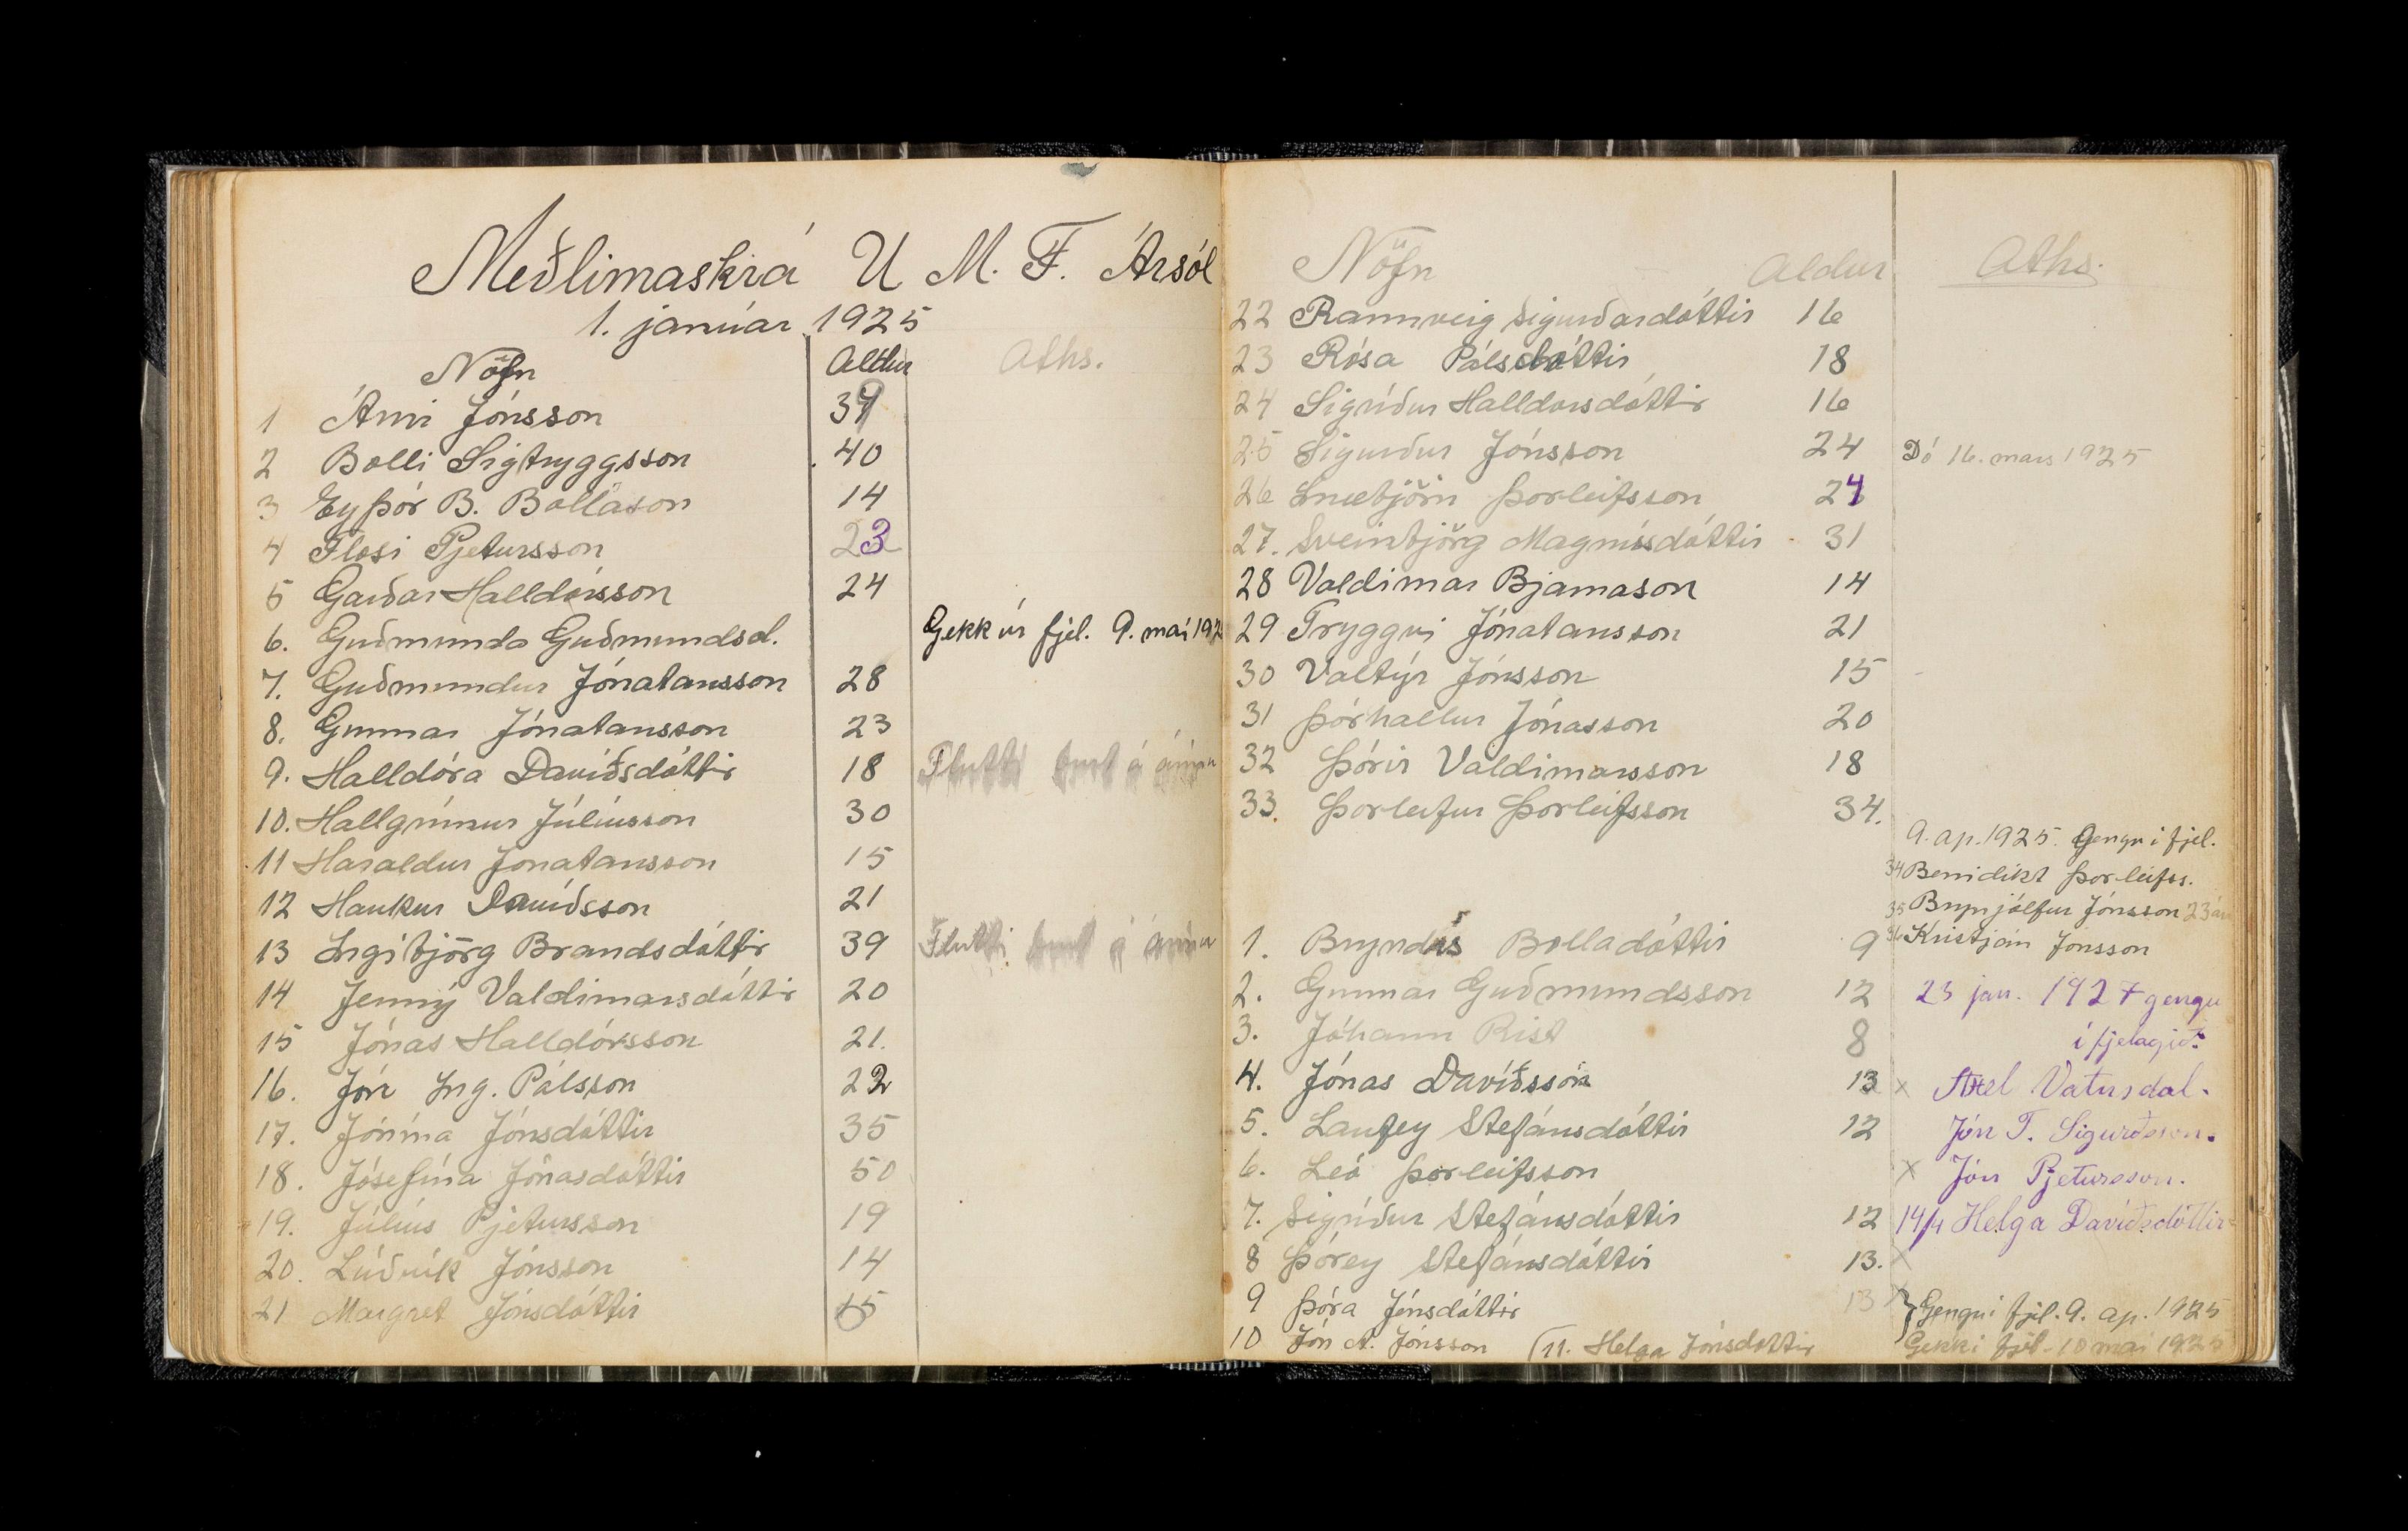 Meðlimaskrá U M. F. Ársól
1. janúar 1925
Nöfn Aldur Aths.
1 Árni Jónsson 39
2 Bolli Sigtryggsson 40
3 Eyþór B. Bollason 14
4 Flosi Pjetursson 23
5 Garðar Halldórsson 24
6. Guðmunda Guðmundsd. Gekk úr fjel. 9. maí 192
7. Guðmundur Jónatansson 28
8. Gunnar Jónatansson 23
9. Halldóra Davíðsdóttir 18 Flutti burt á árinu
10. Hallgrímur Júlíusson 30
11 Haraldur Jónatansson 15
12 Haukur Davíðsson 21
13 Ingibjörg Brandsdóttir 39 Flutti burt á árinu
14 Jenný Valdimarsdóttir 20
15 Jónas Halldórsson 21.
16. Jón Ing. Pálsson 22
17. Jónína Jónsdóttir 35
18. Jósefína Jónasdóttir 50
19. Júlíus Pjetursson 19
20. Lúðvík Jónsson 14
21 Margret Jónsdóttir 15
Nöfn Aldur Aths.
22 Rannveig Sigurðardóttir 16
23 Rósa Pálsdóttir 18
24 Sigríður Halldórsdóttir 16
25 Sigurður Jónsson 24 Dó 16. mars 1925
26 Snæbjörn Þorleifsson 24
27. Sveinbjörg Magnúsdóttir 31
28 Valdimar Bjarnason 14
29 Tryggvi Jónatansson 21
30 Valtýr Jónsson 15
31 Þórhallur Jónasson 20
32 Þórir Valdimarsson 18
33. Þorleifur Þorleifsson 34.
9. ap. 1925. Gengu í fjel.
34 Benidikt Þorleifss.
35 Brynjólfur Jónsson 23 ár
36 Kristján Jónsson
1. Bryndís Bolladóttir 9
2. Gunnar Guðmundsson 12
3. Jóhann Rist 8
4. Jónas Davíðsson 13
5. Laufey Stefánsdóttir 12
6. Leó Þorleifsson
7. Sigríður Stefánsdóttir 12
8 Þórey Stefánsdóttir 13.
9 Þóra Jónsdóttir 13
10 Jón A. Jónsson (11. Helga Jónsdóttir
23 jan. 1927 gengu
í fjelagið:
x Axel Vatnsdal.
Jón T. Sigurðsson.
x Jón Pjetursson.
14/4 Helga Davíðsdóttir
x
x } Gengu í fjel. 9. ap. 1925
Gekk í fjel. 10 maí 1925